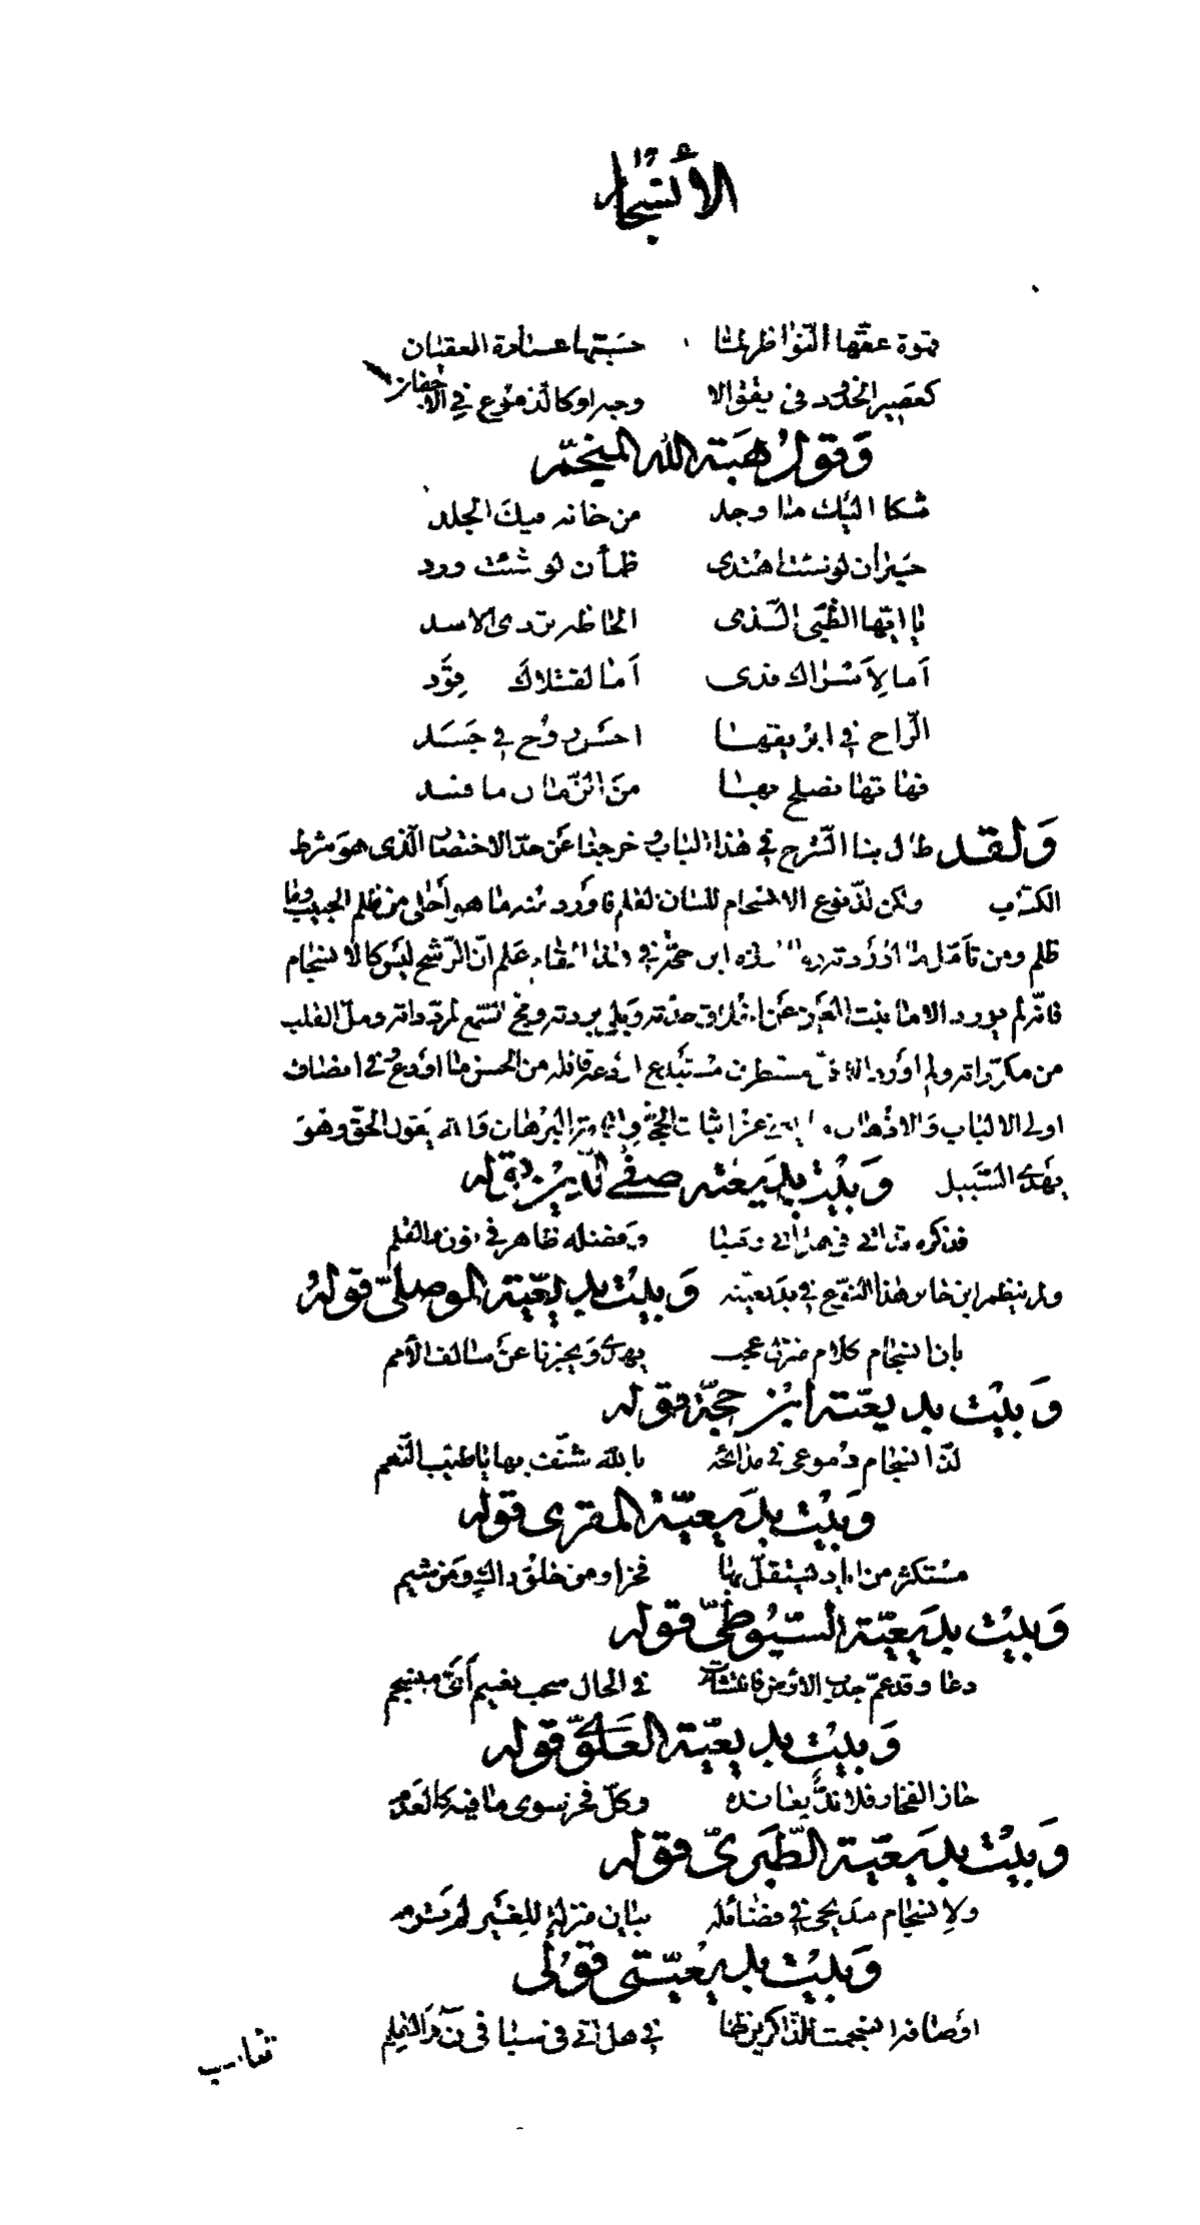 الانسجام
قهوة عقها النواظر لما حسبتها عصارة العقيان
كعصير الخدود في يقق الا وجه او كالدموع في الاجفان
وقول هبة الله المنجم
شكا اليك ما وجد من خانه فيك الجلد
حيران لو شئت اهتدى ظمآن لو شئت ورد
يا ايها الظبي الذي الحاظه تردي الاسد
أما لأسراك فدى أما لقتلاك قود
الراح في ابريقها احسن روح في جسد
فهاتها نصلح بها من الزمان ما فسد
ولقد طال بنا الشرح في هذا الباب وخرجنا عن حد الاختصار الذي هو شرط
الكتاب ولكن لذ نوع الانسجام للسان القلم فأورد منه ما هو أحلى من ظلم الحبيب وما
ظلم ومن تأمل ما أوردته ابن حجة في هذا علم ان الرشح ليس كالانسجام
فانه لم يورد الا ما ينبت العين عن اخلاق جدته وبلي بردته ومج السمع لمردداته ومل القلب
من مكرراته ولم اورد الا كل مستطرف مستبدع اذعر قائله من الحسن ما اودع في انصاف
اولي الالباب والاذهان عن اثبات الحجج واقامة البرهان والله يقول الحق وهو
يهدي السبيل وبيت بديعية صفي الدين قوله
فذكره قد اتى في هل أتى وسبا وفضله ظاهر في نون والقلم
ولم ينظم ابن جابر هذا النوع في بديعيته وبيت بديعية الموصلي قوله
بان انسجام كلام منزل عجب يهدي ويخبرنا عن سالف الأمم
وبيت بديعية ابن حجة قوله
لذ انسجام دموعي في مدائحه بالله شنف بها يا طيب النغم
وبيت بديعية المقري قوله
مستكثر من اياد يستقل بها فخرا ومن خلق زاك ومن شيم
وبيت بديعية السيوطي قوله
دعا وقد عم جدب الارض فانتشأت في الحال سحب بغيم أي منسجم
وبيت بديعية العلوي قوله
حاز الفخار فلا ند يعانده وكل فخر سوى ما فيه كالعدم
وبيت بديعية الطبري قوله
ولانسجام مديحي في فضائله بيان منزلة للغير لم ترم
وبيت بديعيتي قولي
اوصافه انسجمت للذاكرين لها في هل اتى في سبا في نون والقلم